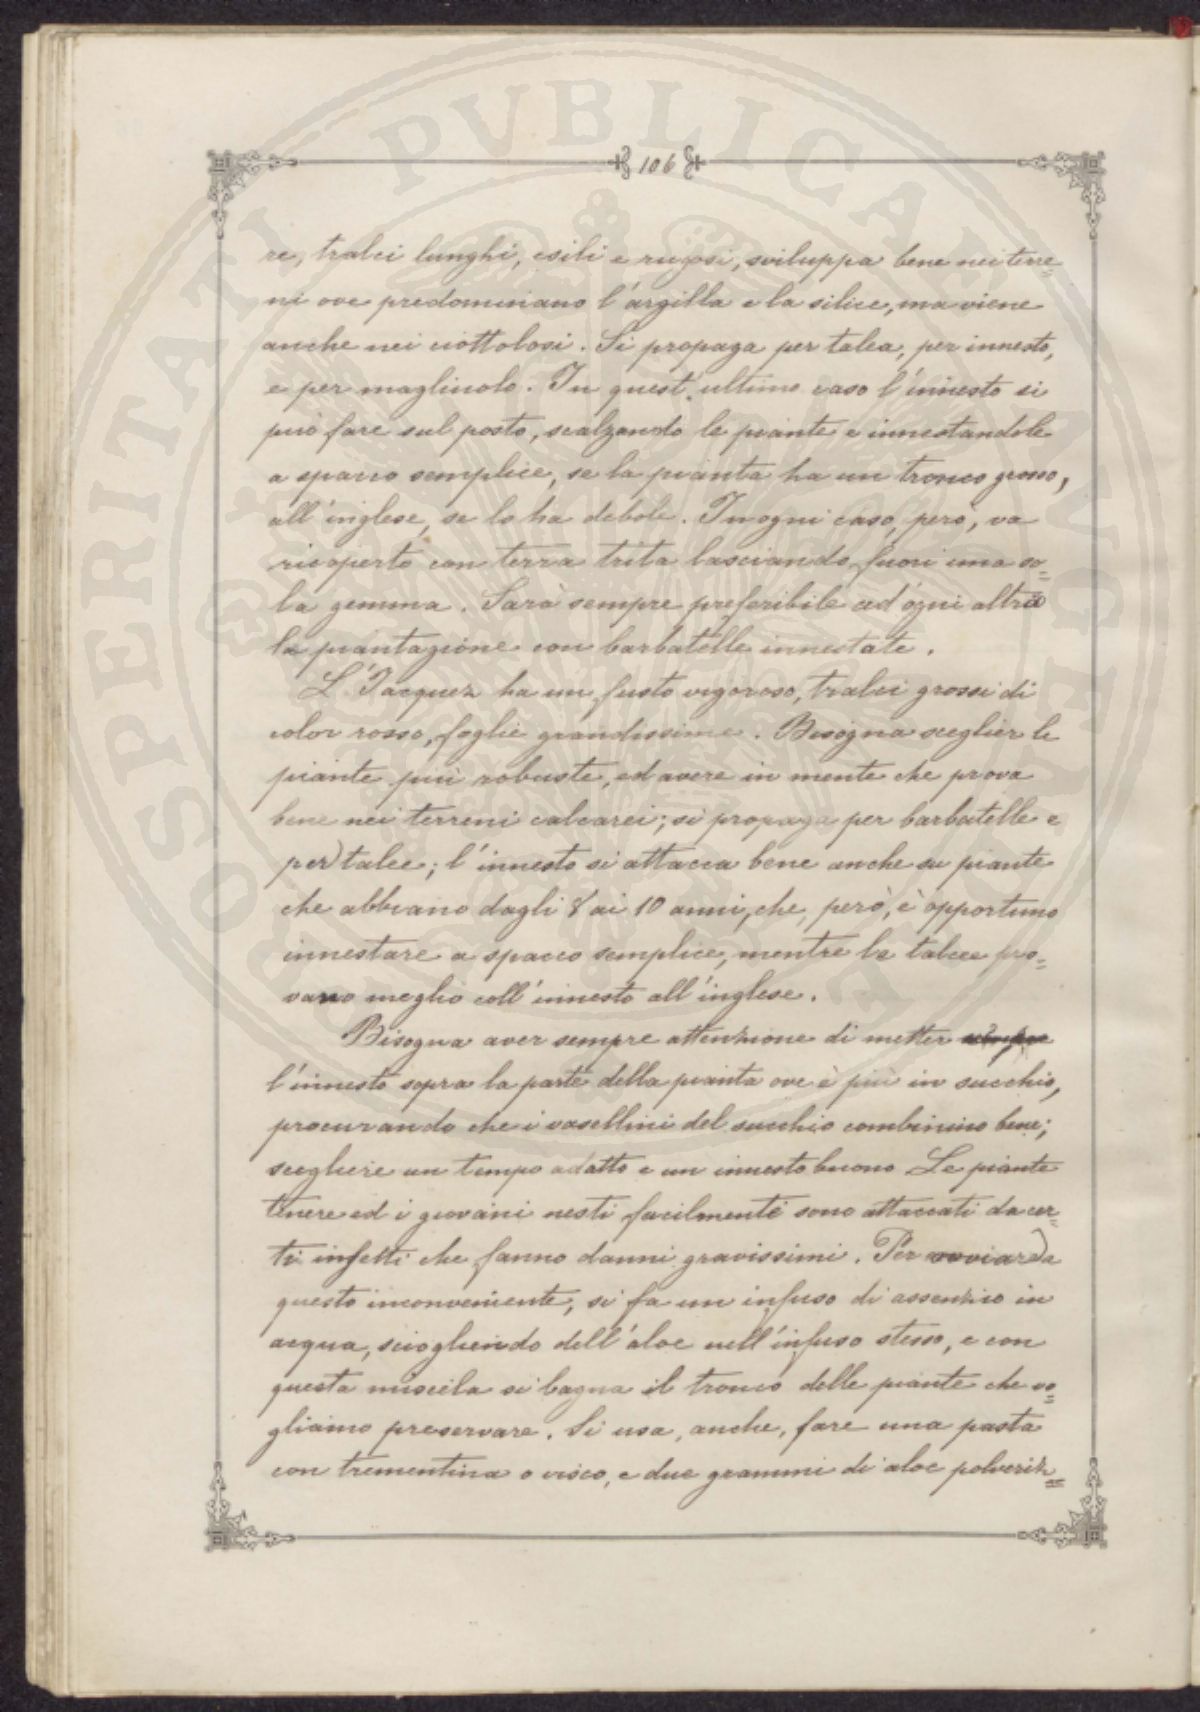 106
re, tralci lunghi, esili e rugosi, sviluppa bene nei terre=
ni ove predominano l'argilla e la silice, ma viene
anche nei ciottolosi. Si propaga per talea, per innesto,
e per maglinolo. In quest'ultimo caso l'innesto si
può fare sul posto, scalzando le piante e innestandole
a spacco semplice, se la pianta ha un tronco grosso,
all'inglese, se lo ha debole. In ogni caso, però, va
ricoperto con terra trita lasciando fuori una so=
la gemma. Sarà sempre preferibile ad ogni altra
la piantagione con barbatelle innestate.
L'Jacquez ha un fusto vigoroso, tralci grossi di
color rosso, foglie grandissime. Bisogna sceglier le
piante più robuste, ed avere in mente che prova
bene nei terreni calcarei; si propaga per barbatelle e
per talee; l'innesto si attacca bene anche su piante
che abbiano dagli 8 ai 10 anni, che, però, è opportuno
innestare a spacco semplice, mentre le talee pro=
vano meglio coll'innesto all'inglese.
Bisogna aver sempre attenzione di metter
l'innesto sopra la parte della pianta ove è più in succhio,
procurando che i vasellini del succhio combinino bene;
scegliere un tempo adatto e un innesto buono Le piante
tenere ed i giovani nesti facilmente sono attaccati da cer=
ti insetti che fanno danni gravissimi. Per ovviare a
questo inconveniente, si fa un infuso di assenzio in
acqua, sciogliendo dell'aloe nell'infuso stesso, e con
questa miscela si bagna il tronco delle piante che vo=
gliamo preservare. Si usa, anche, fare una pasta
con trementina o visco, e due grammi di aloe polveriz=
SPERITATI PVBLICAE AVGENDAE